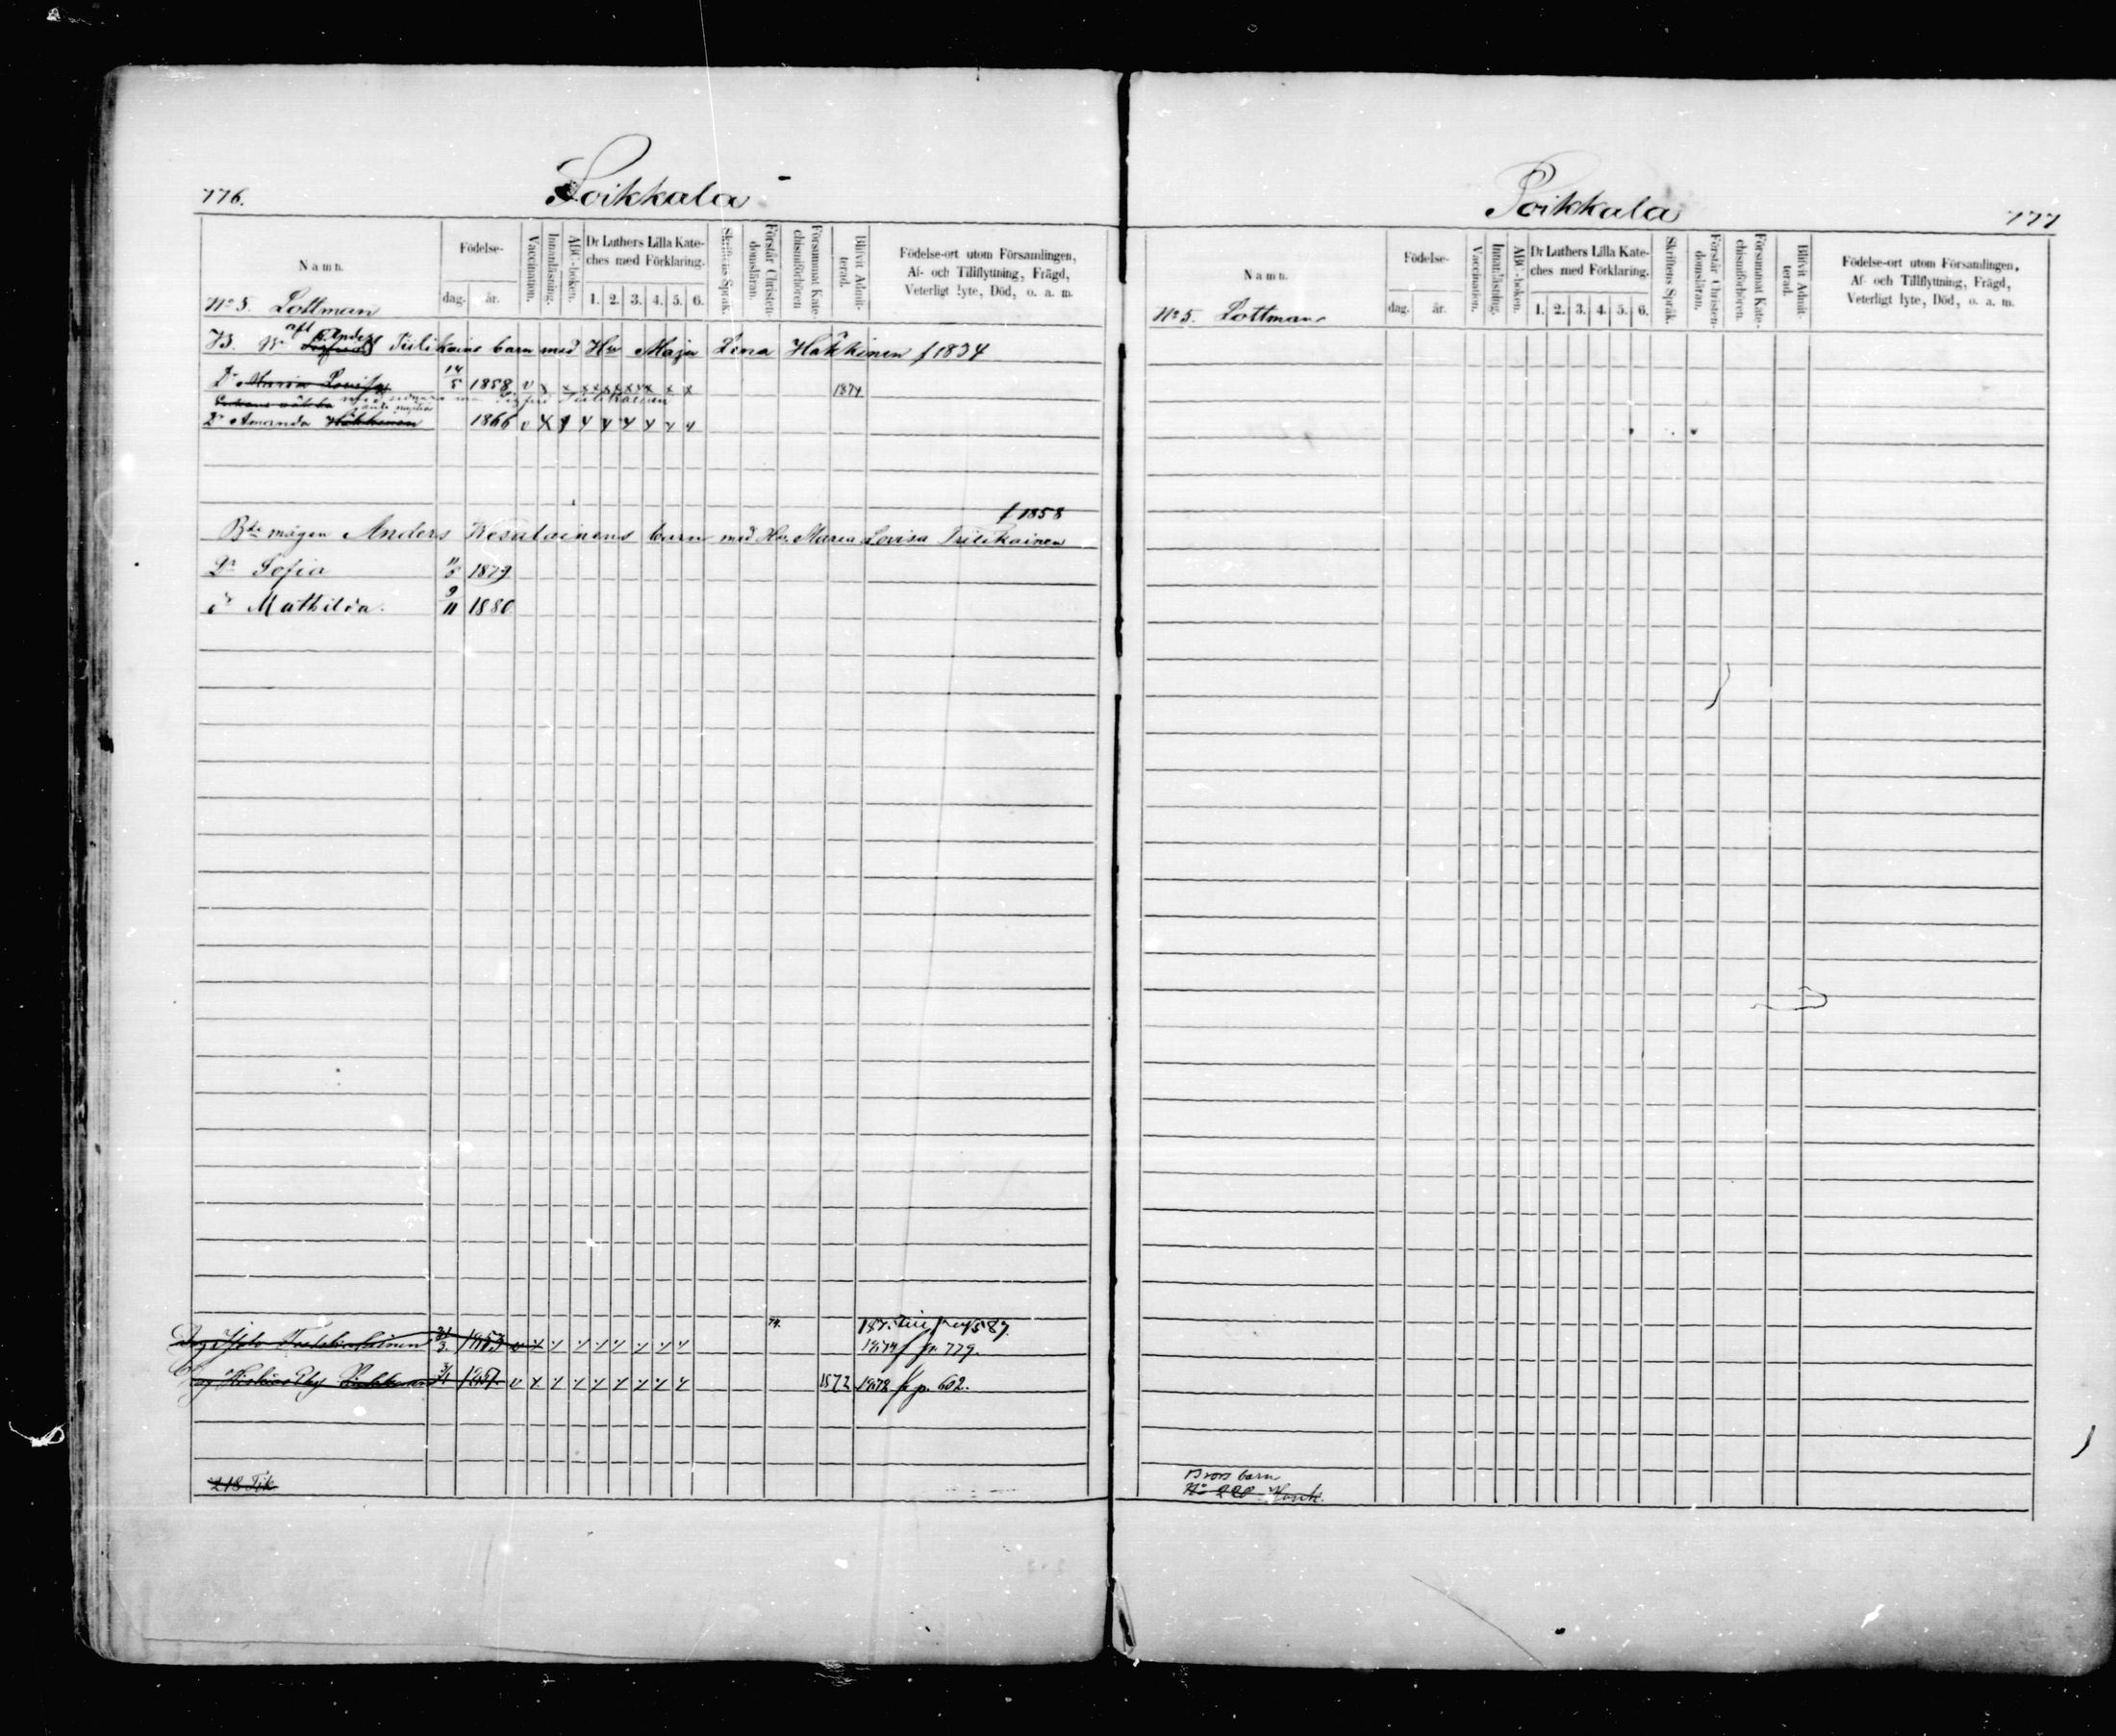 776.
Poikkala
Namn.
Födelse-
dag.
år.
Vaccination.
Innanläsning.
ABC-boken.
Dr Luthers Lilla Kate-
ches med Förklaring.
1. 2. 3. 4. 5. 6.
Skriftens Språk.
Förstår Christen-
domsläran.
Försummat Kate-
chismiförhören
Blifvit Admit-
terad.
Födelse-ort utom Församlingen,
Af- och Tillflyttning, Frägd,
Veterligt lyte, Död, o. a. m.
No 5. Lottman
afl Anders
Tiilikains barn med Hu Maja Lena Häkkinen f 1834
Dr Maria Lovisa 14/5 1858 v x x x x x x x x x 1874
Sigfrid Tiilikainen
Dr Amanda Häkkinen 1866
f 1858
Bde mågen Anders Kesalainens barn med Hu Maria Lovisa Tiilikainen
Dr Sofia 1879
dr Mathilda. 9/11 1880
74.
1874 f fr. 779.
1872 1878 f p. 602.
218 Tik
Poikkala
777
Namn.
Födelse-
dag.
år.
Vaccination.
Innanläsning.
ABC-boken.
Dr Luthers Lilla Kate-
ches med Förklaring.
1. 2. 3. 4. 5. 6.
Skriftens Språk.
Förstår Christen-
domsläran.
Försummat Kate-
chismiförhören.
Blifvit Admit-
terad.
Födelse-ort utom Församlingen,
Af- och Tillflyttning, Frägd,
Veterligt lyte, Död, o. a. m.
No 5. Lottman
Brors barn
No 220